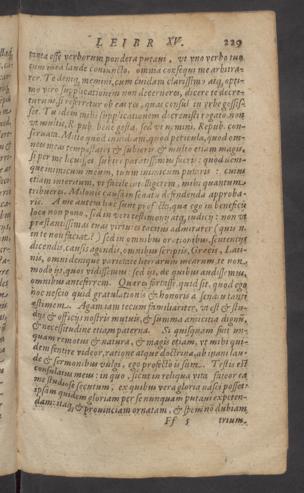 LEIBR XV. 229
tanta esse verborum pondera putani, vt vno verbo tuo
cum mea laude coniuncto, omnia consequi me arbitra-
rer. Te deniq; memini, cum cuidam clarissimo atq; opti-
mo viro supplicationem non decerneres, dicere te decre-
turum, si referretur ob eas res, quas consul in vrbe gessis-
set. Tu idem mihi supplicationem decreuisti togato, non
vt multis, R. pub. bene gesta, sed vt nemini, Repub. con-
seruata. Mitto quod inuidiam, quod pericula, quod om-
neis meas tempestatis & subieris & multo etiam magis,
si per me licuisset subire paratissimus fueris: quod deni-
que inimicum meum, tuum inimicum putaris: cuius
etiam interitum, vt facile intelligerem, mihi quantum
tribueres, Milonis causam in senatu defendenda approba-
ris. A me autem haec sunt profecta, quae ego in beneficij
loco non pono, sed in veri testimonij atq; iudicij: non vt
praestantissimas tuas virtutes tacitus admirarer (quis n.
te non id facit?) sed in omnibus orationibus, sententijs
dicendis, causis agendis, omnibus scriptis, Graecis, Lati-
nis, omni denique varietate literarum mearum, te non
modo ijs, quos vidissemus sed ijs, de quibus audissemus,
omnibus anteferrem. Quaeres fortasse, quid sit, quod ego
hoc nescio quid gratulationis & honoris a senatu tanti
aestimem. Agam iam tecum familiariter, vt est & stu-
dijs & officijs nostris mutuis, & summa amicitia dignum,
& necessitudine etiam paterna. Si quisquam fuit vn-
quam remotus & natura, & magis etiam, vt mihi qui-
dem sentire videor, ratione atque doctrina, ab inani lau-
de & sermonibus vulgi, ego profecto is sum. Testis est
consulatus meus: in quo, sicut in reliqua vita fateor ea
me studiose secutum, ex quibus vera gloria nasci posset:
ipsam quidem gloriam per se nunquam putaui expeten-
dam: itaq; & prouinciam ornatam, & spem non dubiam
Ff 5 trium-